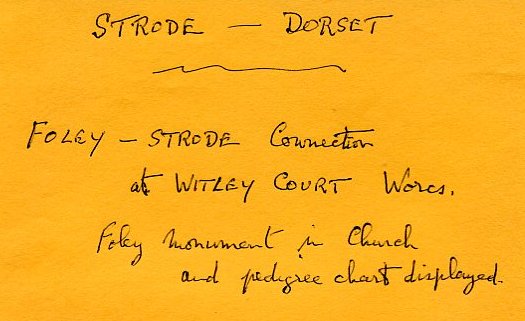 STRODE — DORSET
FOLEY — STRODE Connection
at WITLEY COURT Worcs.
Foley monument in Church
and pedigree chart displayed.